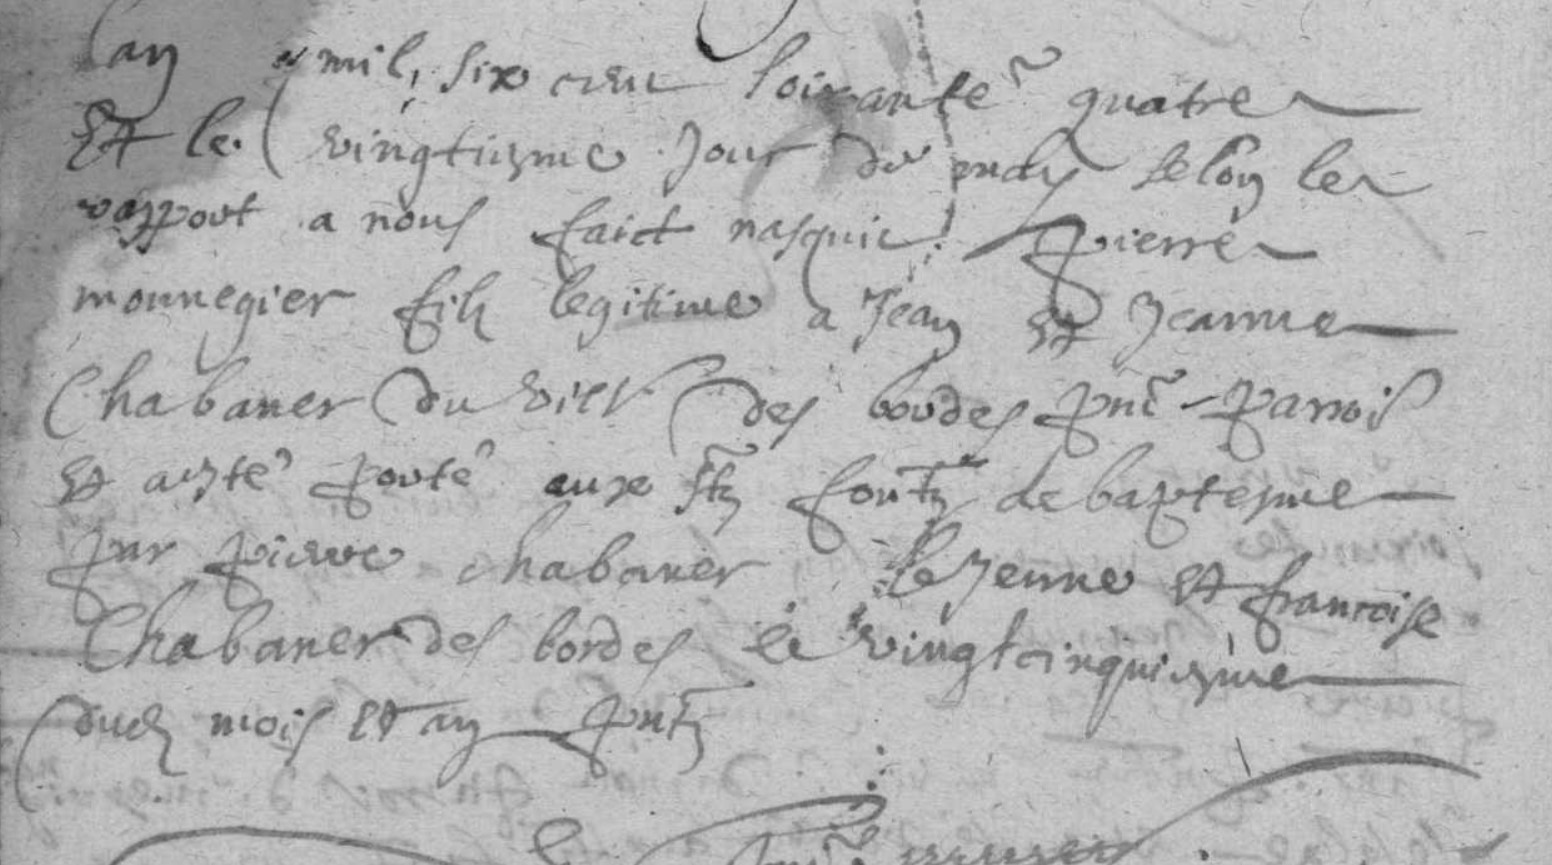 Lan mil six cent soixante quatre
Et le vingtiesme Jour du selon le
rapport a nous faict nasquit pierre
monnegier filz legitime a Jean Et Jeanne
Chabaner du des bordes pnt parrois
Et a este porté aux stz fontz de baptesme
par pierre chabaner le Jeune Et francoise
Chabaner des bordes le vingtcinquiesme
dud mois Et an pntz